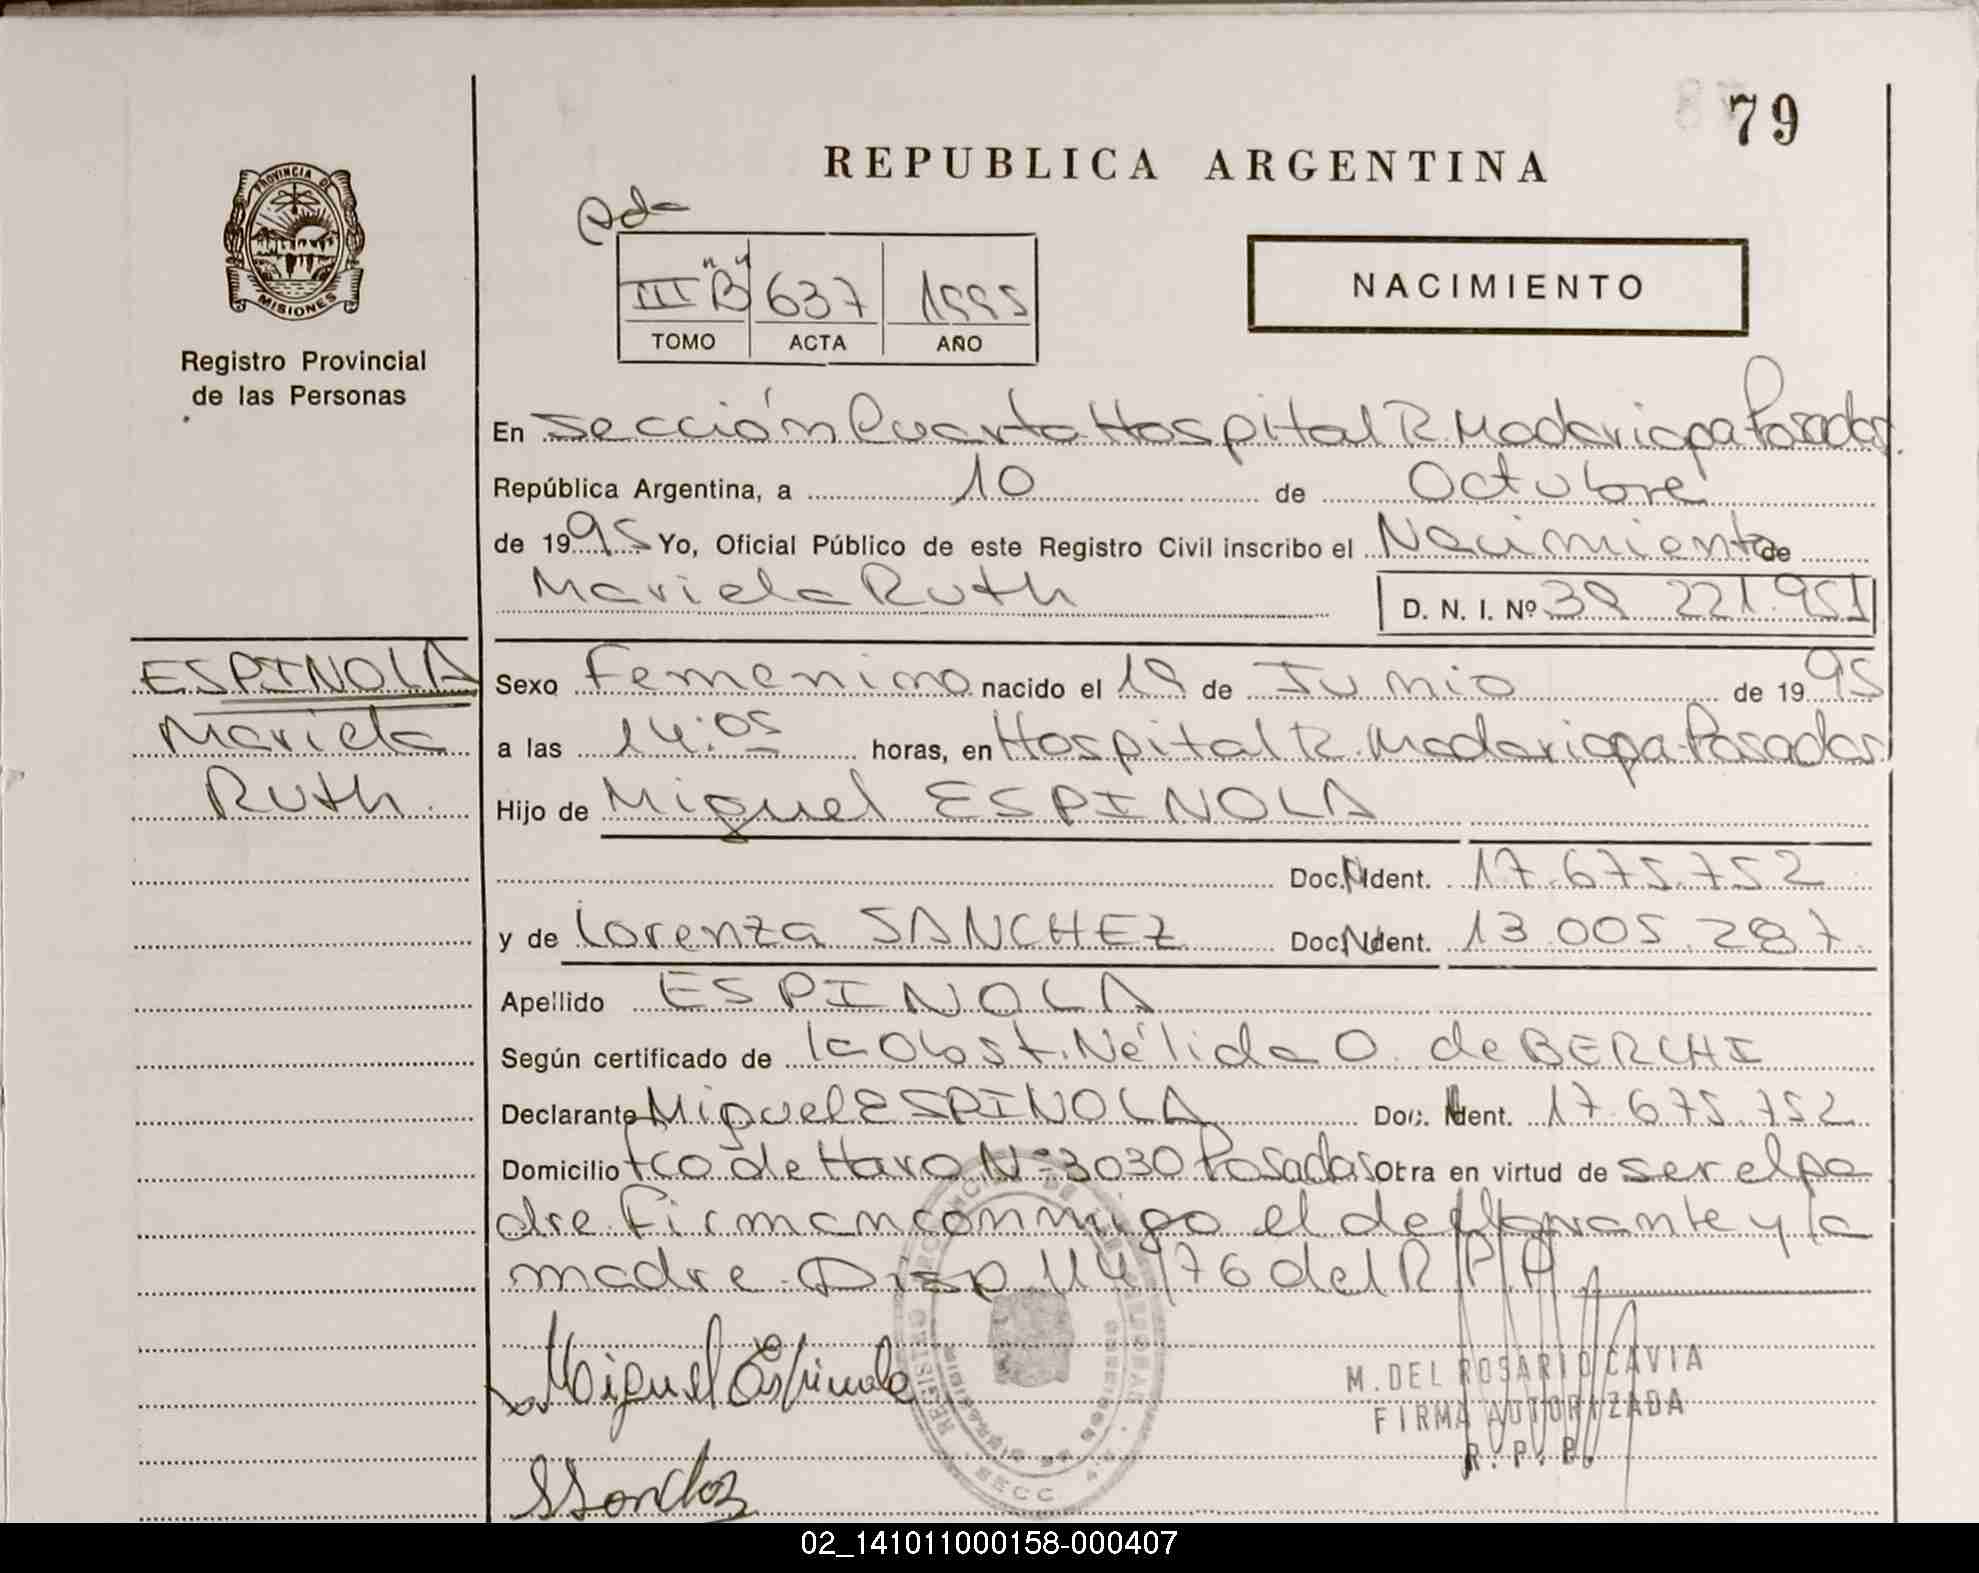 79
REPUBLICA ARGENTINA
PROVINCIA DE
MISIONES
Registro Provincial
de las Personas
Pda
III "B" 637 1995
TOMO ACTA AÑO
NACIMIENTO
En Sección Cuarta Hospital R. Madariaga Posadas
República Argentina, a 10 de Octubre
de 1995 Yo, Oficial Público de este Registro Civil inscribo el Nacimiento de
Mariela Ruth D. N. I. Nº 39 221.951
ESPINOLA
Mariela
Ruth
Sexo Femenino nacido el 19 de Junio de 1995
a las 14:05 horas, en Hospital R. Madariaga-Posadas
Hijo de Miguel ESPINOLA
Doc. N Ident. 17.675.752
y de Lorenza SANCHEZ Doc. N Ident. 13.005.287
Apellido ESPINOLA
Según certificado de la Obst. Nélida O. de BERCHI
Declarante Miguel ESPINOLA Doc. Ident. 17.675.752
Domicilio Fco de Haro Nº 3030 Posadas Otra en virtud de ser el pa
dre. Firman conmigo el declarante y la
madre. Disp. 114/76 del R.P.P.
Miguel Espinola
M. DEL ROSARIO CAVIA
FIRMA AUTORIZADA
R. P. P.
02_141011000158-000407